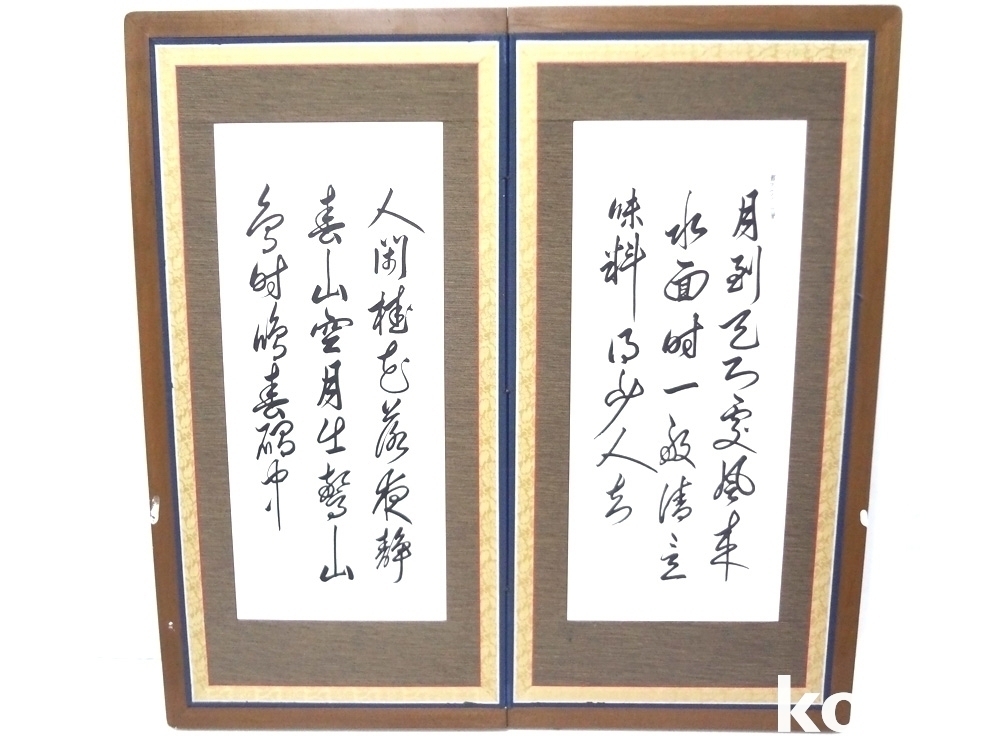 月到天心處風來
水面時一般清意
味料得少人知
人閑桂花落夜靜
春山空月出驚山
鳥時鳴春磵中
ko